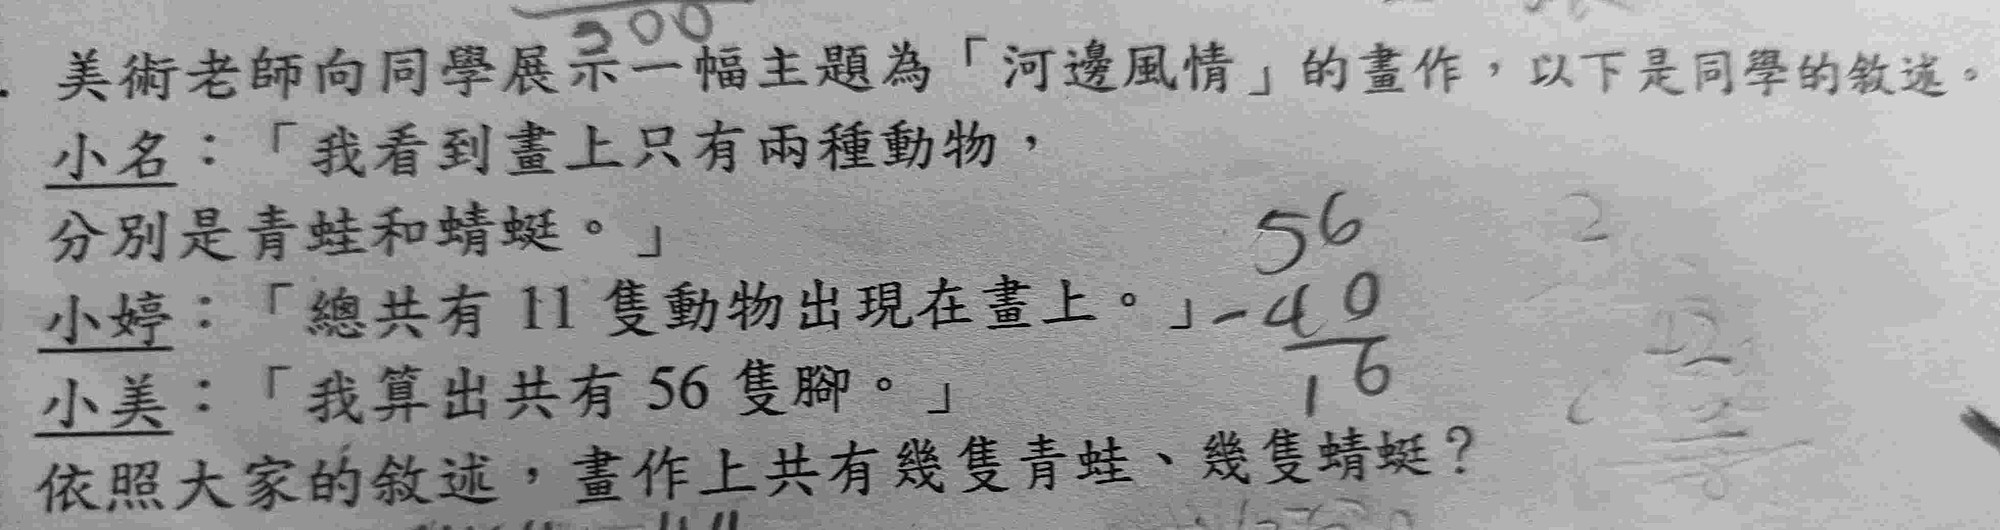 300
美術老師向同學展示一幅主題為「河邊風情」的畫作，以下是同學的敘述。
小名：「我看到畫上只有兩種動物，
分別是青蛙和蜻蜓。」
小婷：「總共有 11 隻動物出現在畫上。」
小美：「我算出共有 56 隻腳。」
依照大家的敘述，畫作上共有幾隻青蛙、幾隻蜻蜓？
56
-40
16
2